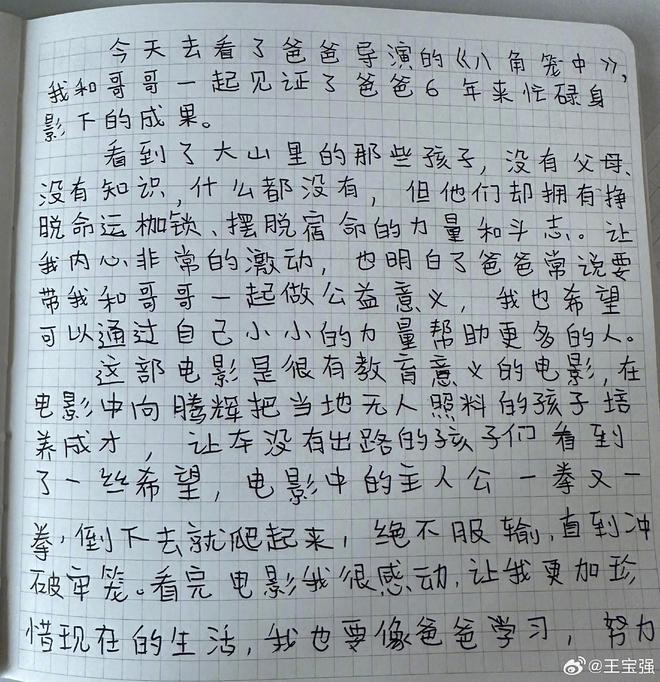 今天去看了爸爸导演的《八角笼中》,
我和哥哥一起见证了爸爸6年来忙碌身
影下的成果。
看到了大山里的那些孩子,没有父母、
没有知识,什么都没有,但他们却拥有挣
脱命运枷锁、摆脱宿命的力量和斗志。让
我内心非常的激动,也明白了爸爸常说要
带我和哥哥一起做公益意义,我也希望
可以通过自己小小的力量帮助更多的人。
这部电影是很有教育意义的电影,在
电影中向腾辉把当地无人照料的孩子培
养成才,让本没有出路的孩子们看到
了一丝希望,电影中的主人公一拳又一
拳,倒下去就爬起来,绝不服输,直到冲
破牢笼。看完电影我很感动,让我更加珍
惜现在的生活,我也要像爸爸学习,努力
@王宝强